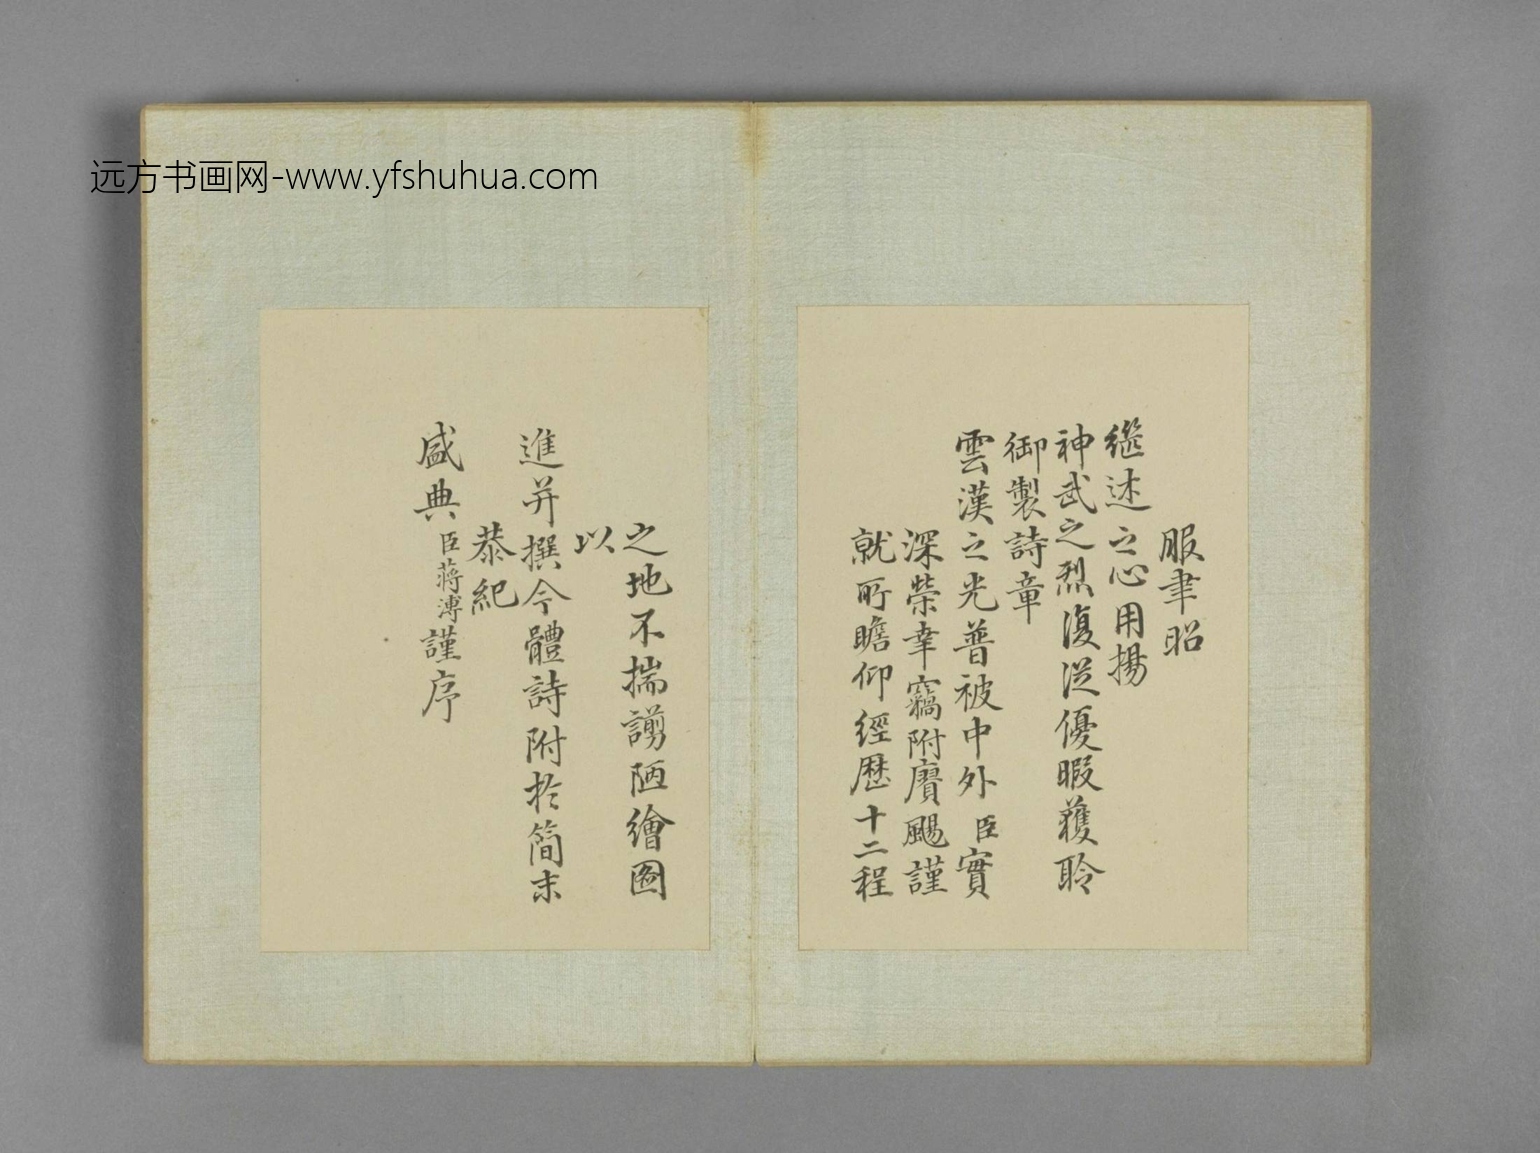 远方书画网-www.yfshuhua.com
服聿昭
繼述之心用揚
神武之烈復從優暇獲聆
御製詩章
雲漢之光普被中外臣實
深榮幸竊附賡颺謹
就所瞻仰經歷十二程
之地不揣謭陋繪圖
以
進并撰今體詩附於簡末
恭紀
盛典臣蔣溥謹序